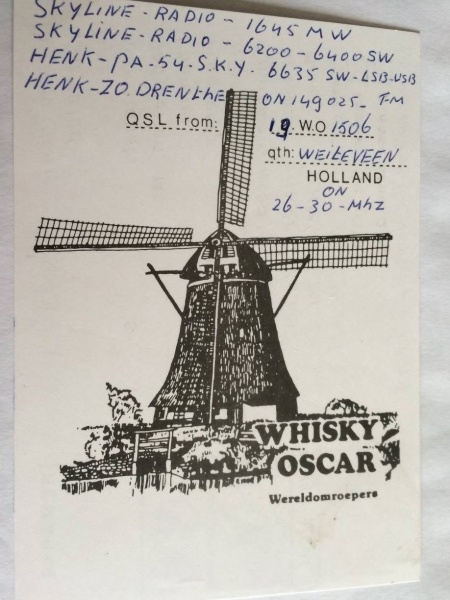 SKYLINE-RADIO-1645 MW
SKYLINE-RADIO-6200-6400 SW
HENK-PA-54-S.K.Y. 6635 SW-LSB-USB
HENK-ZO. DRENthe ON 149025-FM
QSL from: 19 W.O 1506
qth: WEITEVEEN
HOLLAND
ON
26-30-MHZ
WHISKY
OSCAR
Wereldomroepers